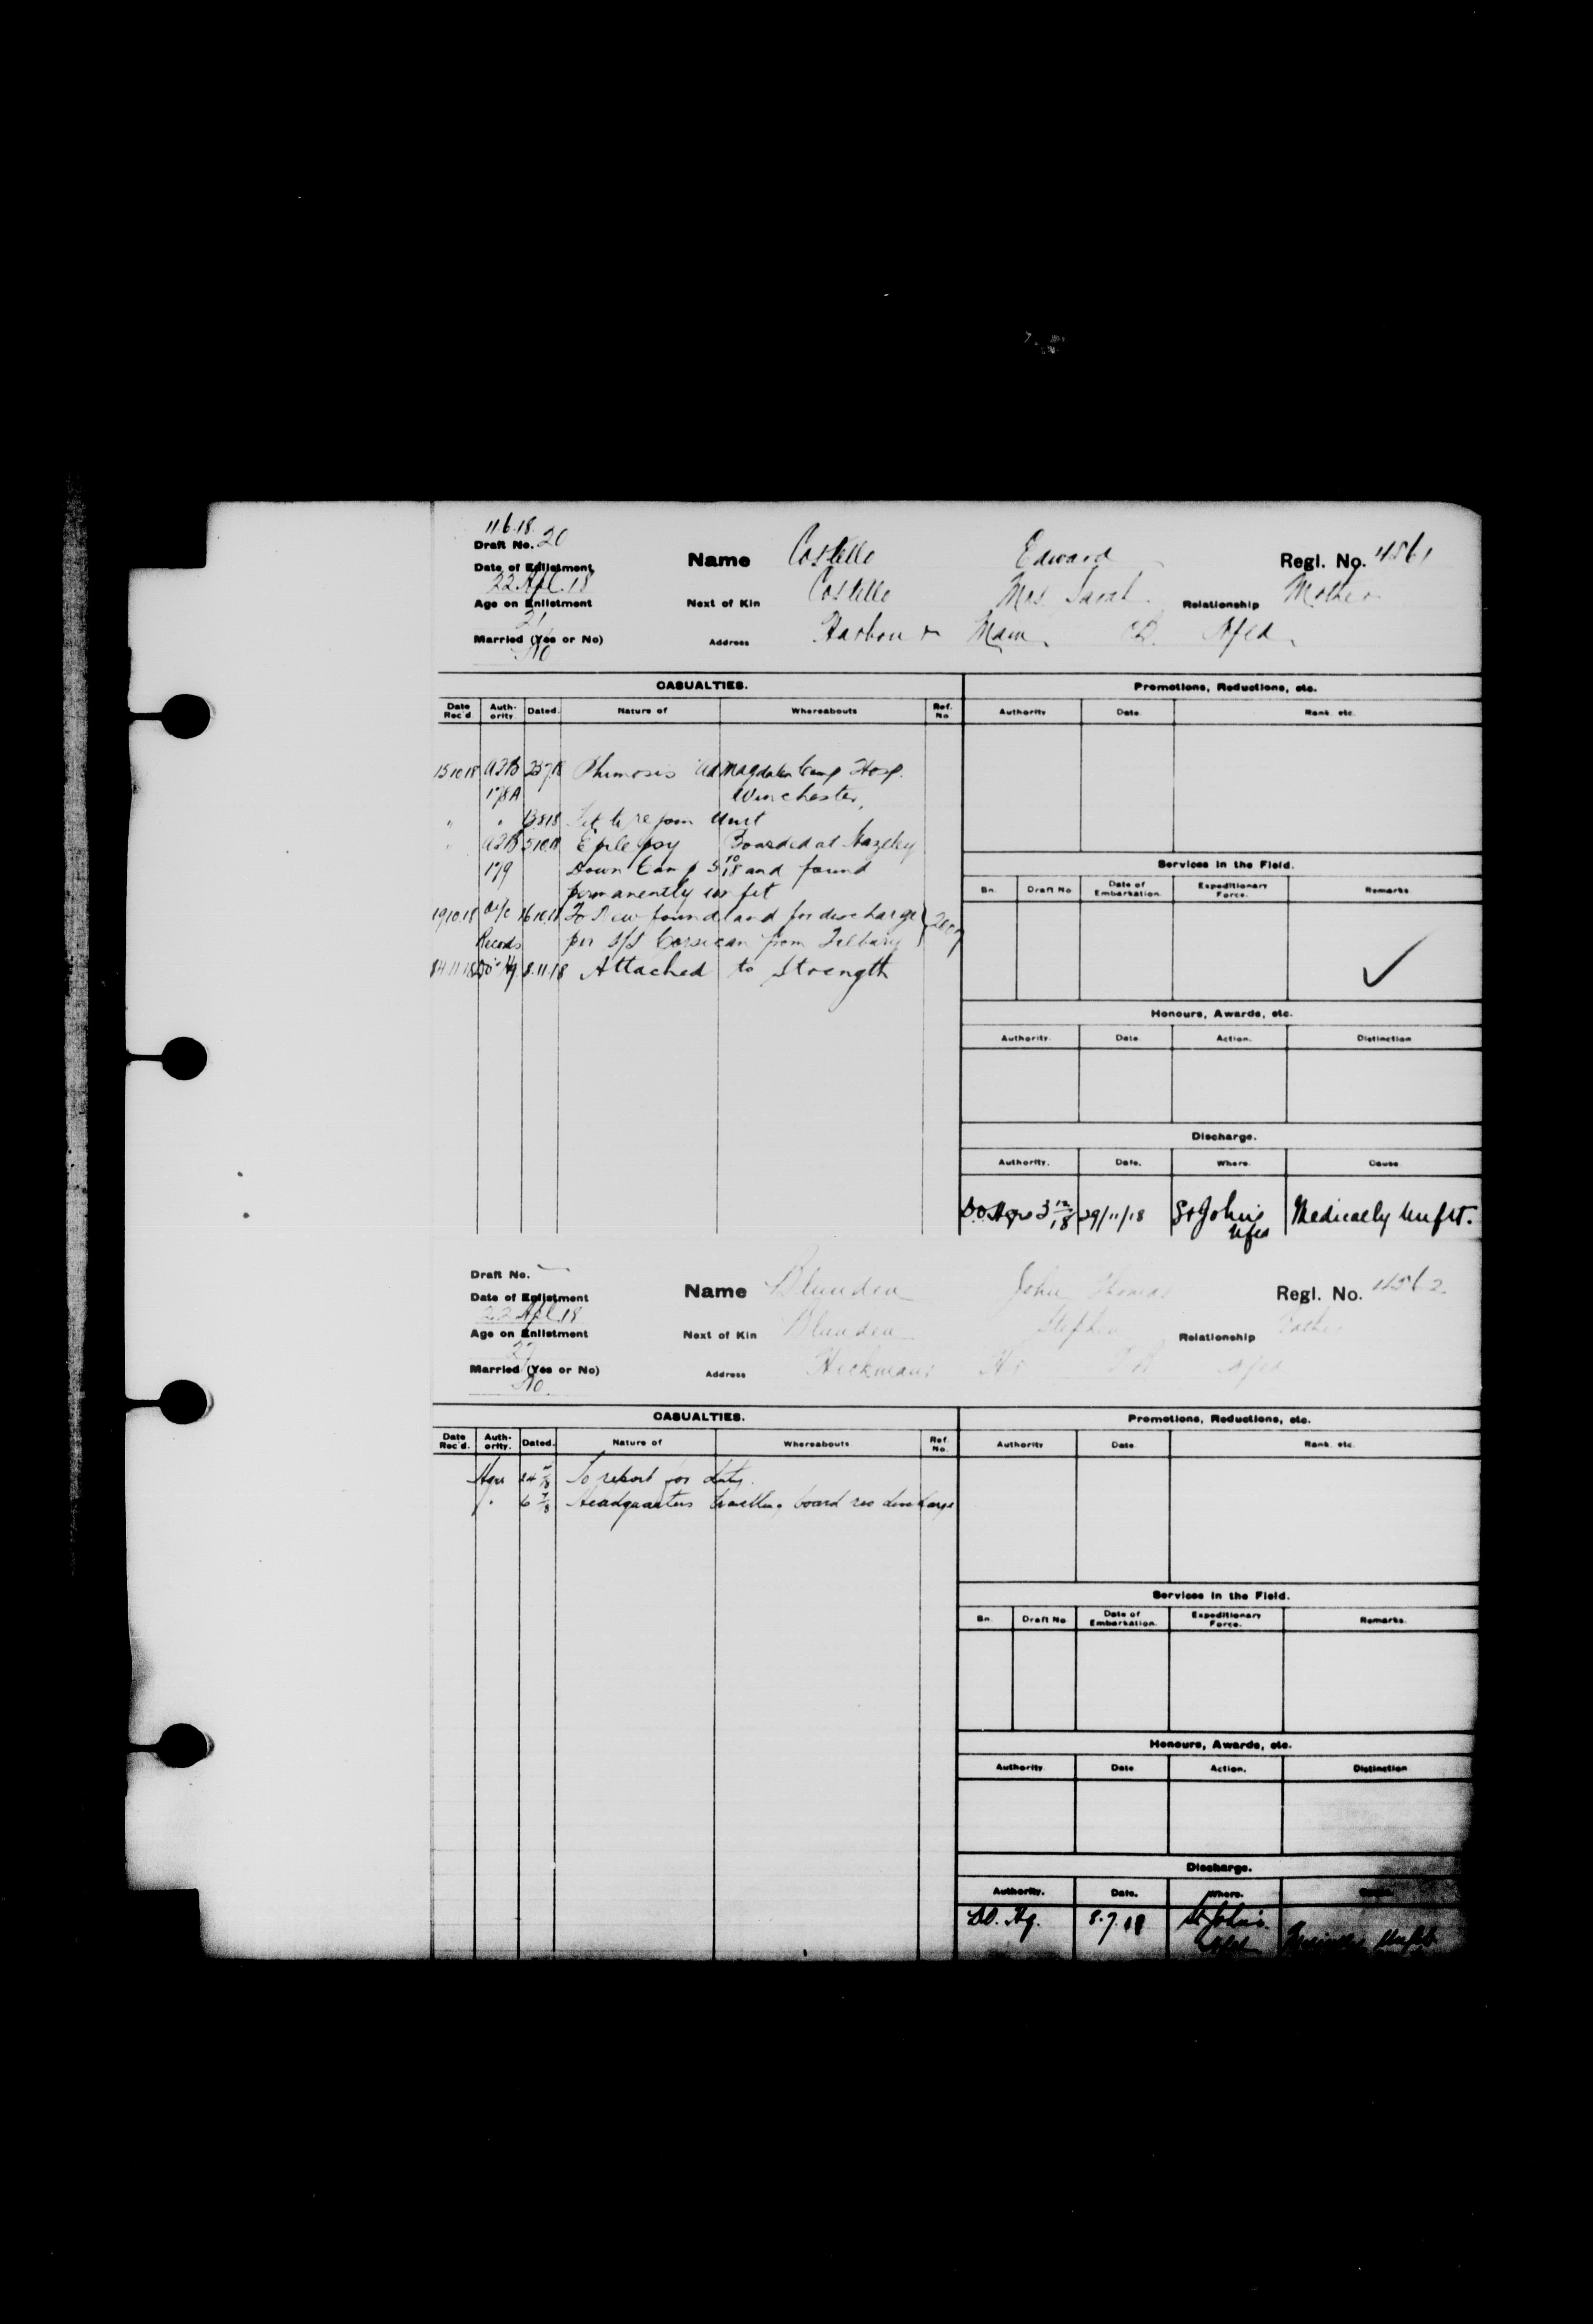 11.6.18.
Draft No. 20
Name Costello Edward Regl. No. 4561
Date of Enlistment
22 Apl. 18
Next of Kin Costello Mrs Sarah Relationship Mother
Age on Enlistment
21
Address Harbour Main C.B. Nfld
Married (Yes or No)
No
CASUALTIES. Promotions, Reductions, etc.
Date Rec'd. Auth-ority. Dated. Nature of Whereabouts Ref. No. Authority Date. Rank. etc.
15.10.18 A2B 25.7.18 Phimosis Ad Magdalen Camp Hosp.
178A Winchester,
" " 13.8.18 Fit to rejoin Unit
" A2B 5.10.18 Epilepsy Boarded at Hazeley
179 Down Camp 5/10/18 and found
permanently unfit
Services in the Field.
Bn. Draft No. Date of Embarkation. Expeditionary Force. Remarks.
19.10.18 O i/c 16.10.18 To Newfoundland for discharge
Records per S/S Corsican from Tilbury
8.11.18 Attached to Strength
Honours, Awards, etc.
Authority. Date. Action. Distinction
Discharge.
Authority. Date. Where. Cause
3 12/18 29/11/18 St John's Medically Unfit.
Nfld
Draft No.
Name Blunden John Thomas Regl. No. 4562
Date of Enlistment
22 Apl. 18
Next of Kin Blunden Stephen Relationship Father
Age on Enlistment
Address Hickmans Hr T.B. Nfld
Married (Yes or No)
No.
CASUALTIES. Promotions, Reductions, etc.
Date Rec'd. Auth-ority. Dated. Nature of Whereabouts Ref. No. Authority Date Rank. etc.
To report for duty.
Headquarters travelling board rec discharge
Services in the Field.
Bn. Draft No. Date of Embarkation. Expeditionary Force. Remarks.
Honours, Awards, etc.
Authority Date Action. Distinction
Discharge.
Authority. Date. Where.
D.O. Hq. 8.7.18 St John's
Nfld Unfit